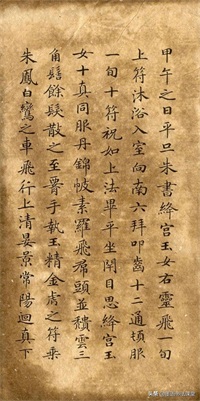 甲午之日平旦朱書絳宮玉女右靈飛一旬
上符沐浴入室向南六拜叩齒十二通頓服
一旬十符祝如上法畢平坐閉目思絳宮玉
女十真同服丹錦帔素羅飛帬頭並頽雲三
角髻餘髮散之至𦝫手執玉精金虎之符乗
朱鳳白鸞之車飛行上清晏景常陽迴真下